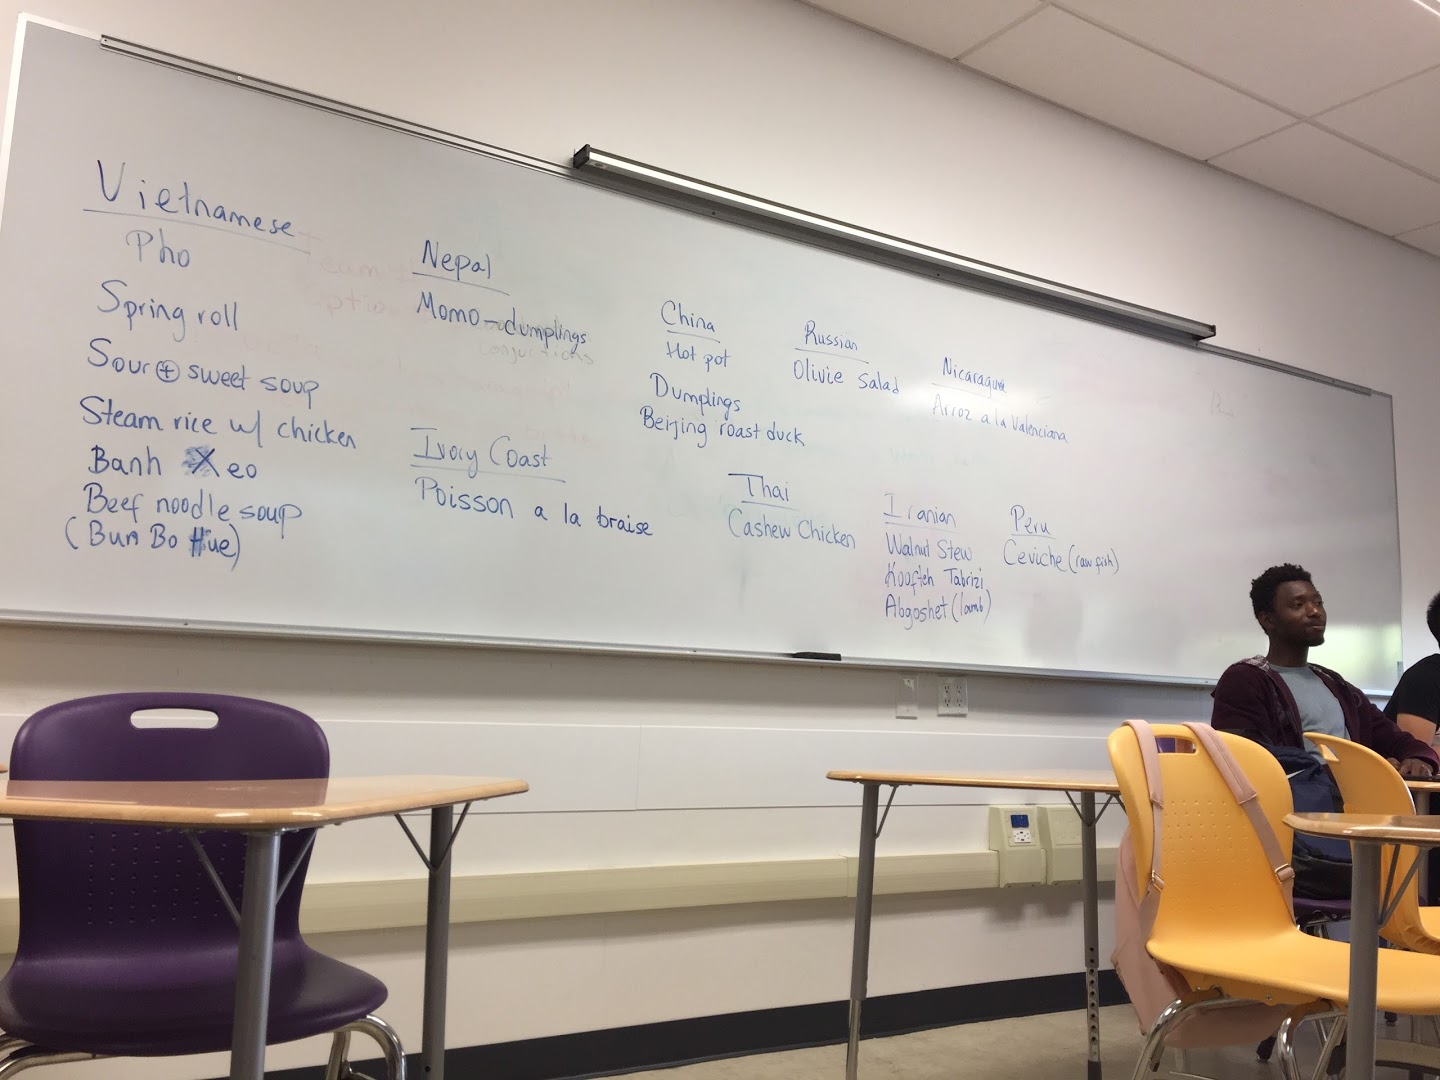 Vietnamese
Pho
Spring roll
Sour + sweet soup
Steam rice w/ chicken
Banh Xeo
Beef noodle soup
(Bun Bo Hue)
Nepal
Momo - dumplings
conjuctions
Ivory Coast
Poisson a la braise
China
Hot pot
Dumplings
Beijing roast duck
Russian
Olivie Salad
Nicaragua
Arroz a la Valenciana
Thai
Cashew Chicken
Iranian
Walnut Stew
Koofteh Tabrizi
Abgoshet (lamb)
Peru
Ceviche (raw fish)